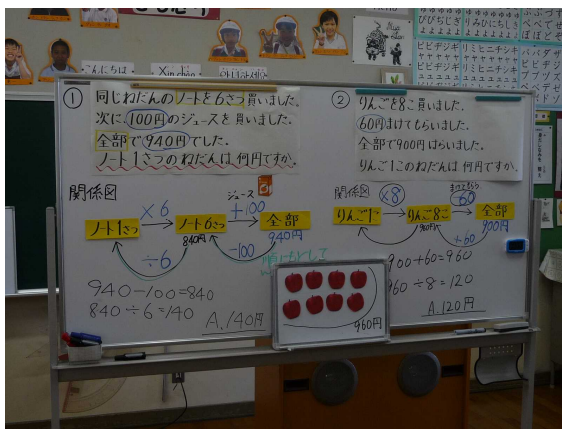 こんにちは。
Xin chào
①
同じねだんのノートを6さつ買いました。
次に、100円のジュースを買いました。
全部で940円でした。
ノート1さつのねだんは何円ですか。
関係図
×6
ジュース
+100
ノート1さつ
ノート6さつ
全部
840円
940円
÷6
-100
940-100=840
840÷6=140
A.140円
②
りんごを8こ買いました。
60円まけてもらいました。
全部で900円はらいました。
りんご1このねだんは何円ですか。
関係図
×8
-60
りんご1こ
りんご8こ
全部
960円
900円
+60
900+60=960
960÷8=120
A.120円
960円